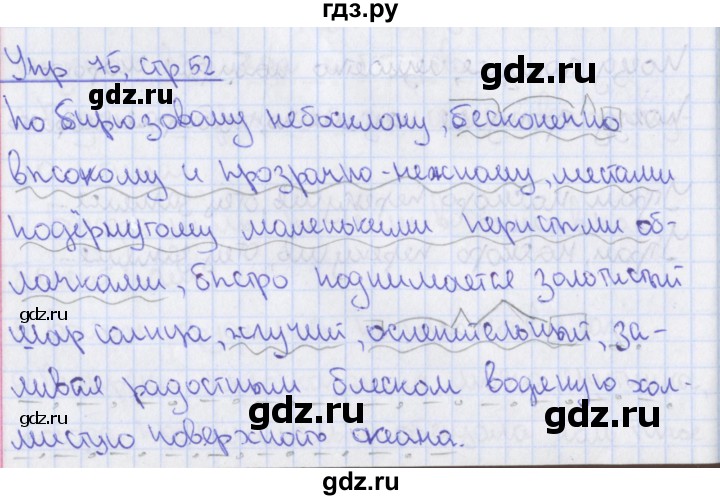 гдз.ру
Упр 75, стр 52
По бирюзовому небосклону, бесконечно
высокому и прозрачно-нежному, местами
подёрнутому маленькими перистыми об-
лачками, быстро поднимается золотистый
шар солнца, жгучий, ослепительный, за-
ливая радостным блеском водяную хол-
мистую поверхность океана.
gdz.ru
gdz.ru
gdz.ru
gdz.ru
gdz.ru
gdz.ru
gdz.ru
gdz.ru
gdz.ru
gdz.ru
gdz.ru
gdz.ru